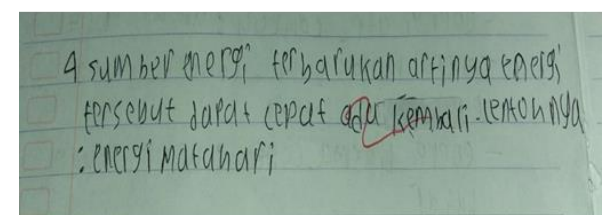 4 sumber energi terbarukan artinya energi
tersebut dapat cepat ada kembali. Contohnya
: energi matahari